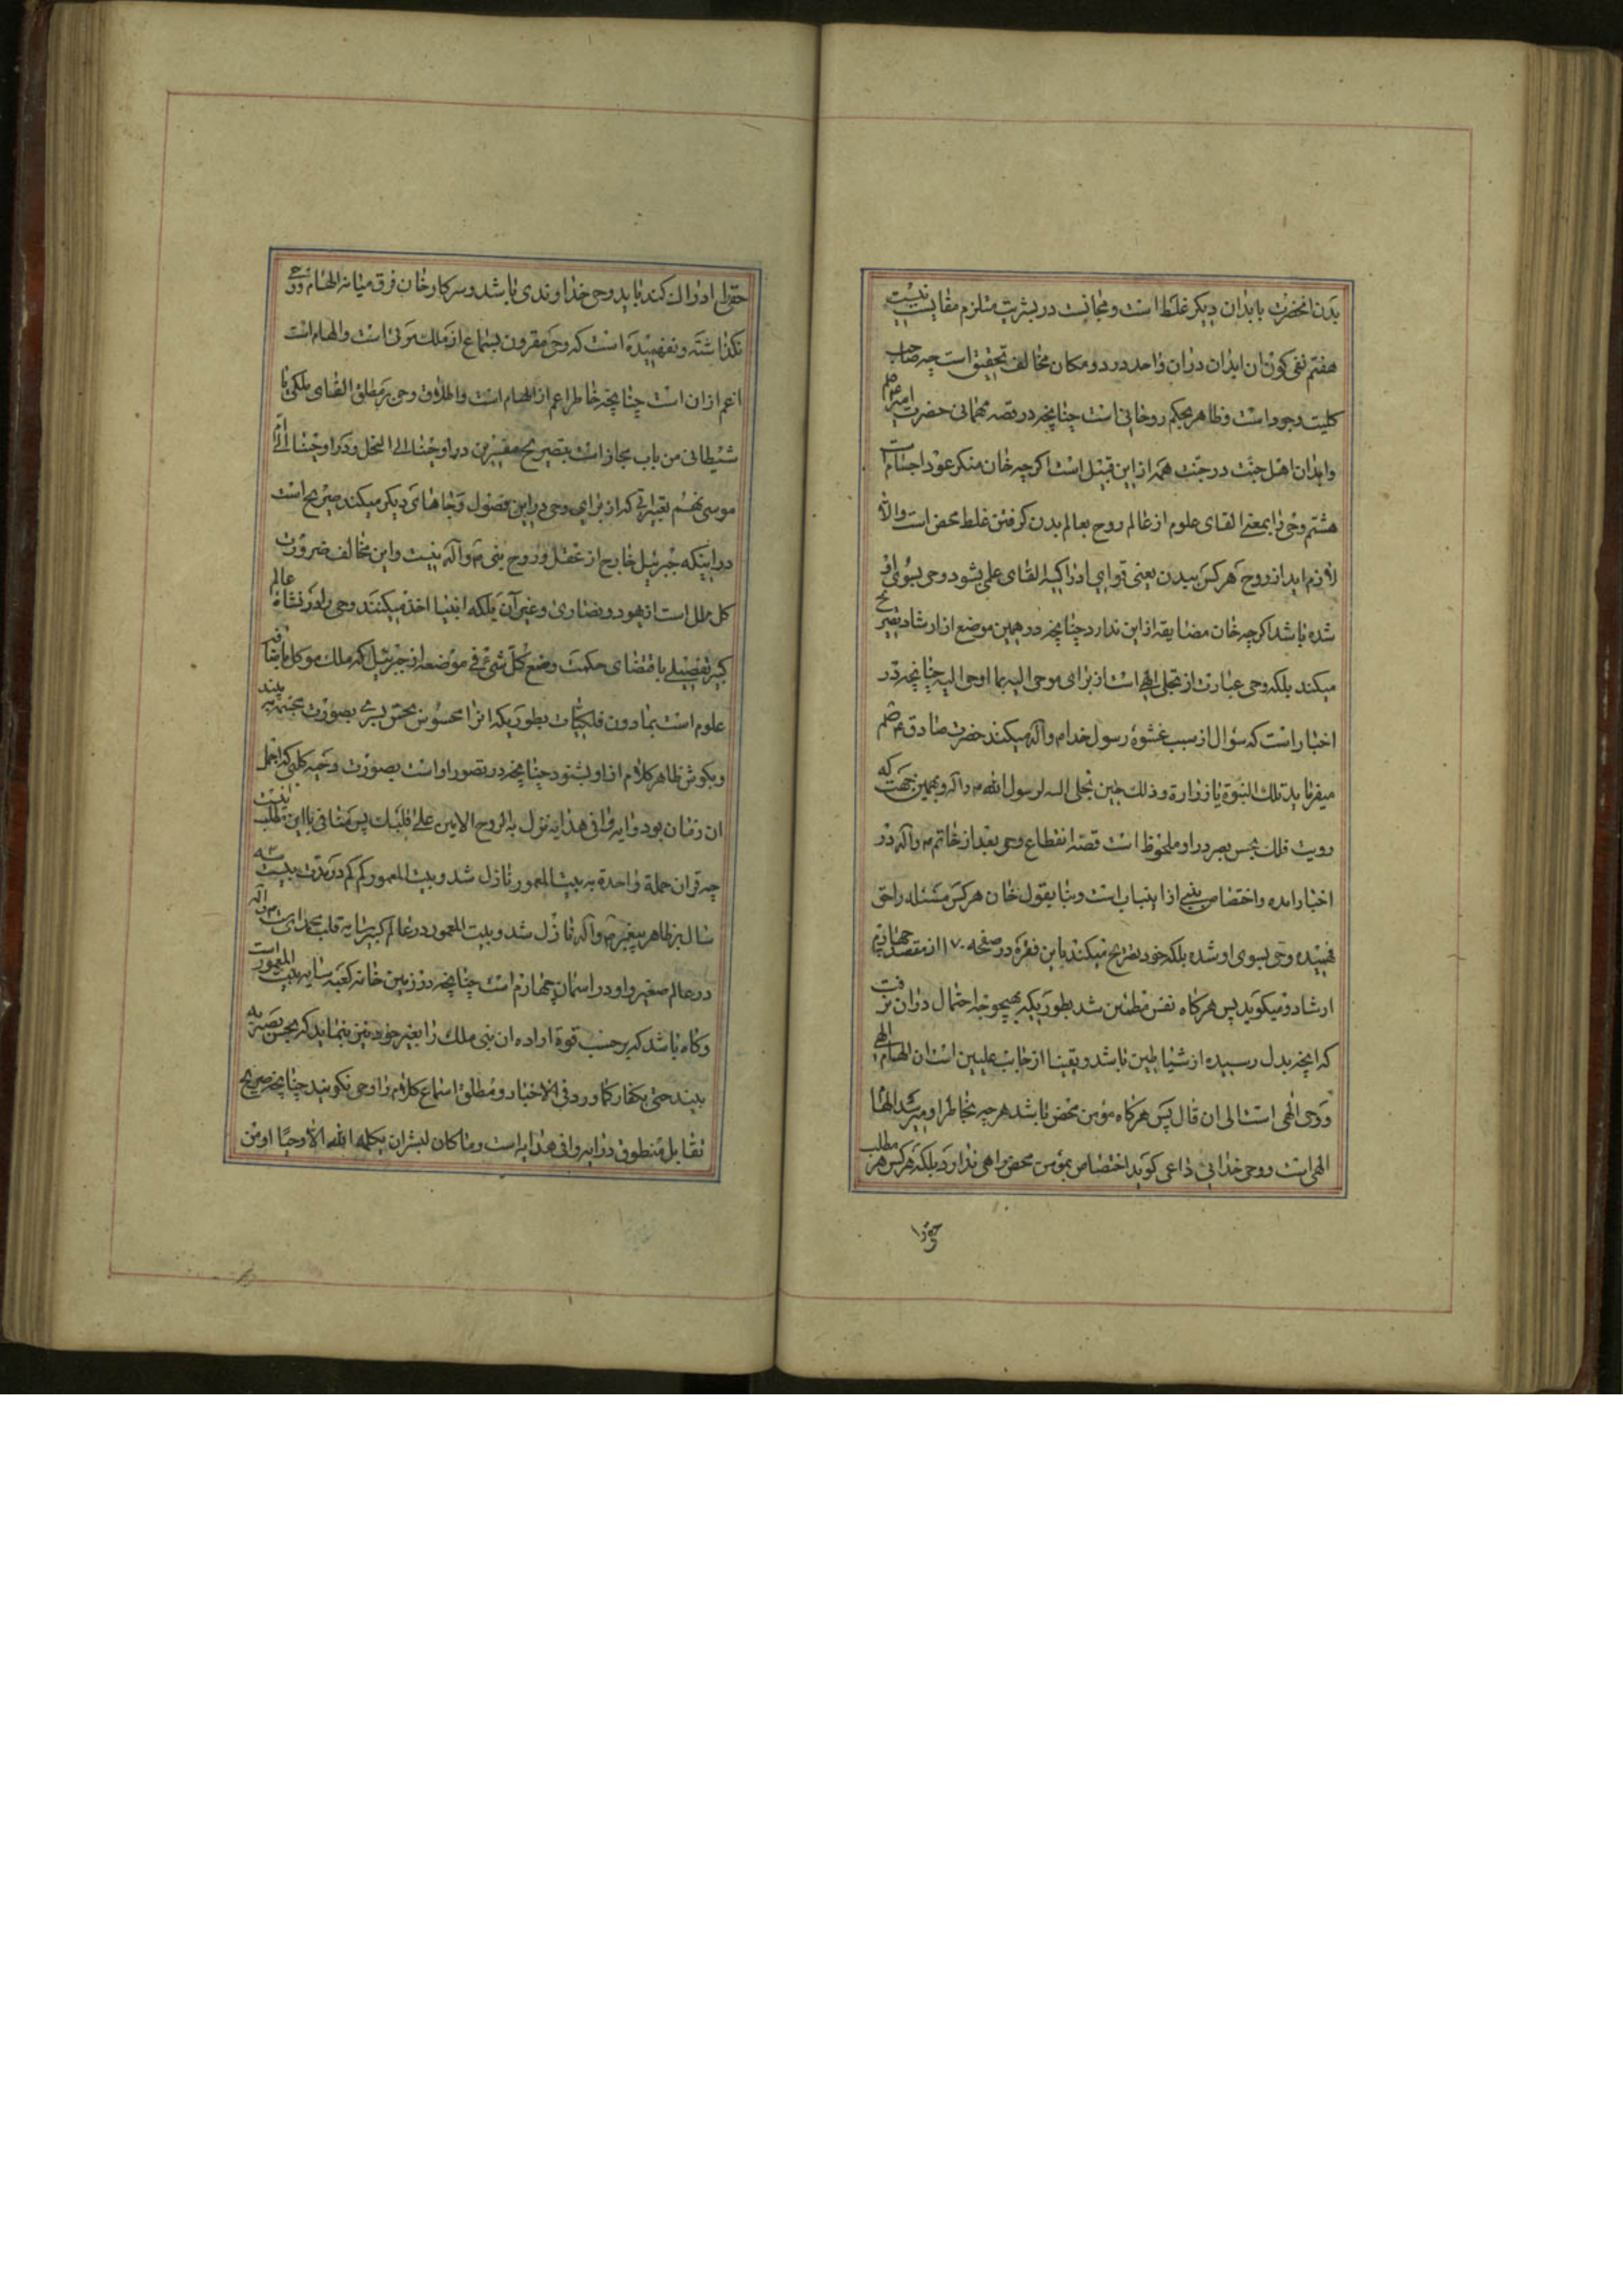 بدن انحضرت بابدان دیکر غلط است و مجانست در بشریت مستلزم مقایست نیست
هفتم نفی کون ان ابدان در ان واحد در دو مکان مخالف تحقیق است چه صاحب
کلیت وجود است و ظاهر بحکم روحانی است چنانچه در قصه مهمانی حضرت امیر
وابدان اهل جنت در جنت همه از این قبیل است اکر چه خان منکر عود اجسام است
هشتم وحی را بمعنی القای علوم از عالم روح بعالم بدن کرفتن غلط محض است والا
لازم اید از روح هر کس ببدن یعنی قوای ادراکیه القای علمی بشود وحی بسوی او
شده باشد اکر چه خان مضایقه از این ندارد چنانچه در همین موضع از ارشاد تصریح
میکند بلکه وحی عبارت از تجلی الهی است از برای موحی الیه بما اوحی الیه چنانچه در
اخبار است که سؤال از سبب غشوهٔ رسول خدا ص وآله میکنند حضرت صادق ع
میفرماید تلک النبوة یا زرارة وذلک حین تجلی الله لرسول الله ص وآله وبهمین جهت که
رویت ملک بحس بصر در او ملحوظ است قصه انقطاع وحی بعد از خاتم ص وآله در
اخبار امده واختصاص بنبی از اینباب است وبنا بقول خان هر کس مسئله راحق
فهمیده وحی بسوی او شده بلکه خود تصریح میکند باین فقره در صفحه ۱۷۰ از مقصد چهارم
ارشاد ومیکوید پس هر کاه نفس مطمئن شد بطوریکه بهیچوجه احتمال دران نرفت
که انچه بدل رسیده از شیاطین باشد ویقینا از جانب علیین است ان الهام الهی
ووحی الهی است الی ان قال پس هر کاه مؤمن محض باشد هر چه بخاطر او میرسد الها
الهی است ووحی خدایی داعی کوید اختصاص بمؤمن محض واهی ندارد بلکه هر کس هر مطلب
حق را
حقی را ادراک کند باید وحی خداوندی باشد وسرکار خان فرق میانه الهام ووحی
نکذاشته ونفهمیده است که وحی مقرون بسماع از ملک مرئی است والهام است
اعم از ان است چنانچه خاطر اعم از الهام است واطلاق وحی بر مطلق القای ملکی یا
شیطانی من باب مجاز است بتصریح مفسرین در اوحینا الی النحل وکذا اوحینا الی ام
موسی نهم تعبیراتی که از برای وحی در این فصول وجاهای دیکر میکند صریح است
در اینکه جبرئیل خارج از عقل وروح نبی ص وآله نیست واین مخالف ضرورت
کل ملل است از یهود ونصاری وغیر آن بلکه انبیا اخذ میکنند وحی را در نشاة عالم
کبیر تفصیلی باقتضای حکمت وضع کل شئ فی موضعه از جبرئیل که ملک موکل بافاضه
علوم است بمادون فلکیات بطوریکه انرا محسوس بحس بصری بصورت مجسمه بیند
وبکوش ظاهر کلام از او بشنود چنانچه در تصور او است بصورت دحیه کلبی که اجمل
ان زمان بود وایه وافی هدایه نزل به الروح الامین علی قلبک پس منافی با این مطلب نیست
چه قران جملة واحدة به بیت المعمور نازل شد وبیت المعمور کم کم در مدت بیست وسه
سال بر ظاهر پیغمبر ص وآله نازل شد وبیت المعمور در عالم کبیر سایه قلب محمد است ص وآله
در عالم صغیر واو در اسمان چهارم است چنانچه در زمین خانه کعبه سایه بیت المعمور است
وکاه باشد که بر حسب قوة اراده ان نبی ملک را بغیر خود نیز بنماید که بحس بصر به
بیند حتی بکفار کما ورد فی الاخبار ومطلق استماع کلام را وحی نکویند چنانچه صریح
تقابل منطوق در ایه وافی هدایه است وما کان لبشر ان یکلمه الله الا وحیًا او من